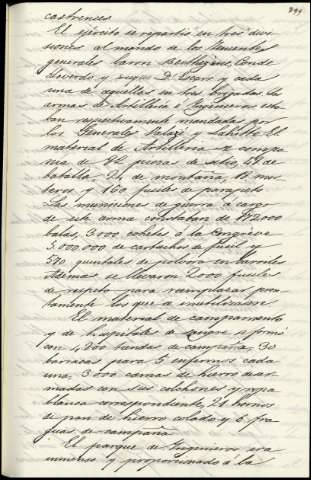 castrenses
El ejército se repartió en tres divi
siones al mando de los thenientes
generales baron Berthezene, Conde
Loverdo y duque D'Escars y cada
una de aquellas en tres brigadas las
armas de Artilleria e Ingenieros esta
ban respectivamente mandadas por
los Generales Valazé y Lahitte El
material de Artilleria se compo
nia de 82 piezas de sitio, 49 de
batalla 24 de montaña, 12 mor
teros y 150 fusiles de parapeto
Las municiones de guerra á cargo
de este arma constaban de 172000
balas, 3.000 cohetes á la Congreve
5.000.000 de cartuchos de fusil y
570 quintales de polvora en barriles
Ademas se llevaron 2000 fusiles
de respeto para reemplazar pron
tamente los que se inutilizaran
El material de campamento
y de hospitales de sangre se formó
con 4,200 tiendas de campaña, 30
barracas para 50 enfermos cada
una, 3.000 camas de hierro desar
madas con sus colchones y ropa
blanca correspondiente, 24 hornos
de pan de hierro colado y 6 fra
guas de campaña
El parque de Ingenieros era
inmenso y proporcionado á la